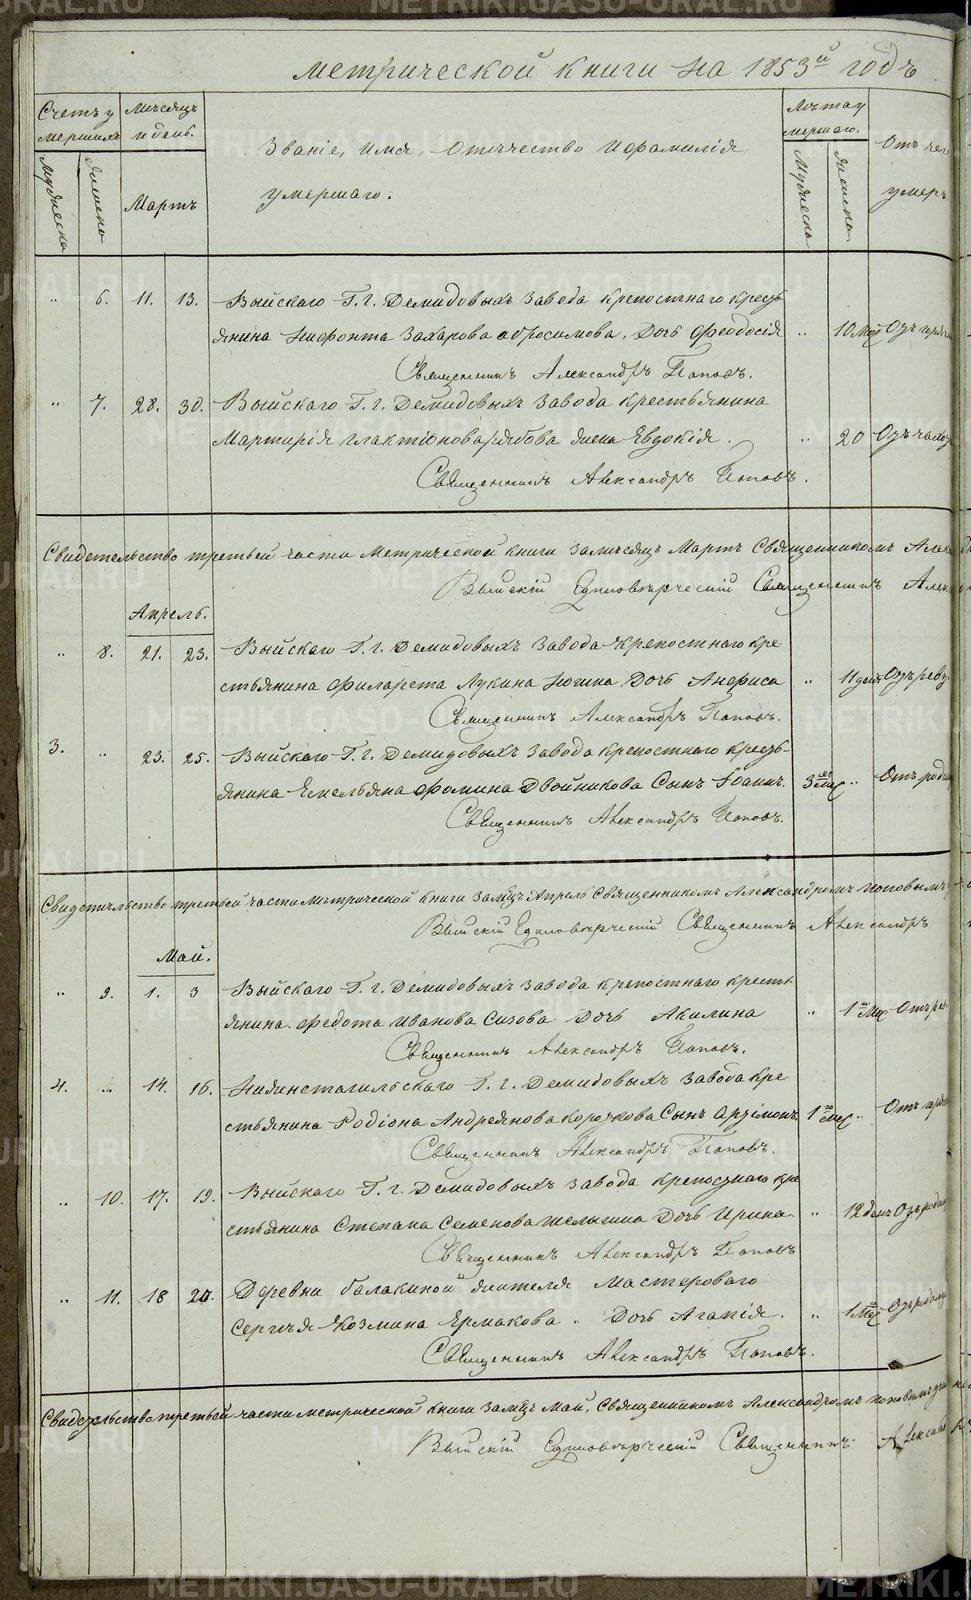 метрической книги на 1853й годъ
Счетъ у
мершихъ
Мѣсяцъ
и день.
Званіе, имя, отчество и фамилія
умершаго.
Лѣта у
мершаго.
Отъ чего
умеръ
Мужеска
Женска
Мартъ
Мужеска
Женска
" 6. 11. 13. Выйскаго Г. г. Демидовыхъ завода крепостнаго кресть
янина Нифонта Захарова Абросимова, Дочь Феодосія " 10 Отъ
Священникъ Александръ Поповъ.
" 7. 28. 30. Выйскаго Г. г. Демидовыхъ завода крестьянина
Мартирія Галактіонова Рябова жена Евдокія. " 20 Отъ
Священникъ Александръ Поповъ.
Свидетельство третьей части Метрической книги за месяцъ Мартъ Священникомъ
Выйскій Единоверческій Священникъ
Апрель.
" 8. 21. 23. Выйскаго Г. г. Демидовыхъ завода крепостнаго кре
стьянина Филарета Лукина Дочь Анфиса " 11
Священникъ Александръ Поповъ.
3. " 23. 25. Выйскаго Г. г. Демидовыхъ завода крепостнаго кресть-
янина Емельяна Фомина Двойникова Сынъ Іоаннъ. 3 мес " Отъ
Священникъ Александръ Поповъ.
Свидетельство третьей части метрической книги за мцъ Апрель Священникомъ Александромъ Поповымъ
Выйскій Единоверческій Священникъ Александръ
Май.
" 9. 1. 3 Выйскаго Г. г. Демидовыхъ завода крепостнаго кресть
янина Федота Иванова Сизова Дочь Акилина " 1 Мес Отъ
Священникъ Александръ Поповъ.
4. " 14. 16. Нижнетагильскаго Г. г. Демидовыхъ завода кре
стьянина Родіона Андреянова Короткова Сынъ 1 мес " Отъ
Священникъ Александръ Поповъ.
" 10. 17. 19. Выйскаго Г. г. Демидовыхъ завода крепостнаго кре
стьянина Степана Семенова Дочь Ирина. " 12 Отъ
Священникъ Александръ Поповъ
" 11. 18 20. Деревни Балакиной жителя Мастероваго
Сергия Козмина Ермакова. Дочь Агапія. " 1 Мес Отъ
Священникъ Александръ Поповъ.
Свидетельство третьей части метрической книги за мцъ Май, Священникомъ Александромъ Поповымъ
Выйскій Единоверческій Священникъ
METRIKI.GASO-URAL.RU